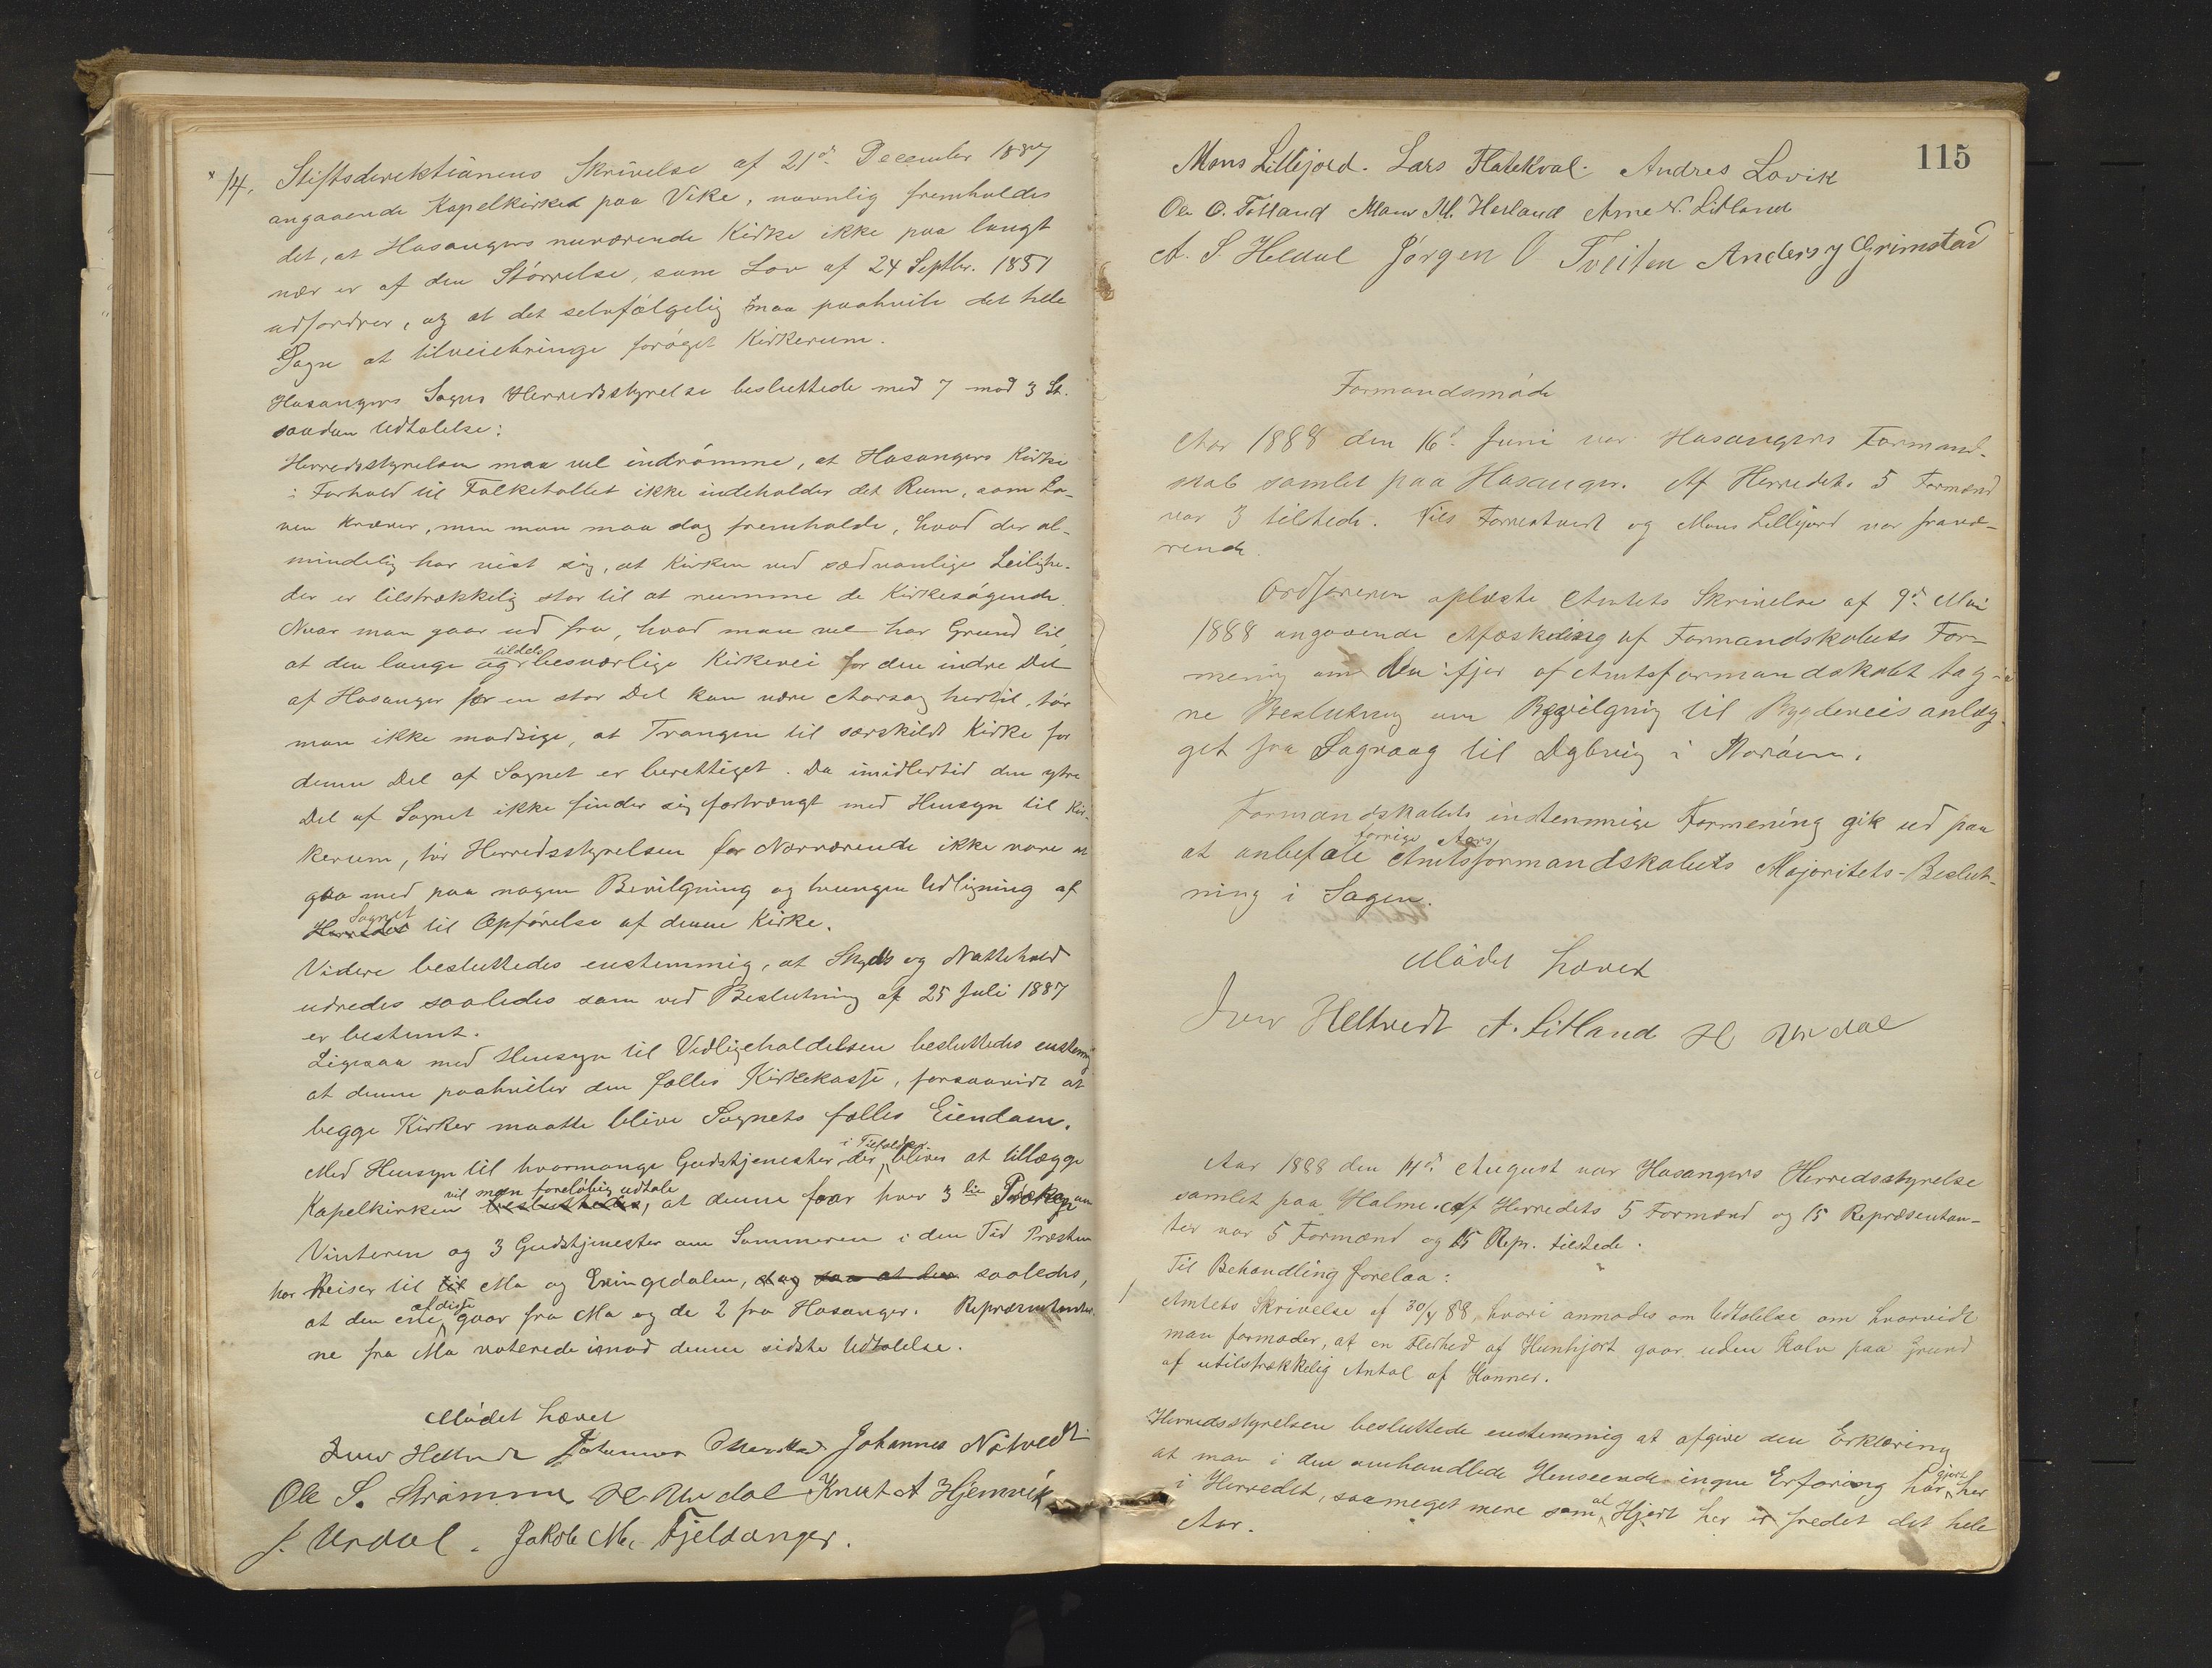 14. Stiftsdirektionens Skrivelse af 21de December 1887
angaaende Kapelkirken paa Vike, navnlig fremholdes
det, at Hosangers nuværende Kirke ikke paa langt
nær er af den Størrelse, som Lov af 24 Septbr. 1851
udfordrer, og at det selvfølgelig maa paahvile det hele
Sogn at tilveiebringe forøget Kirkerum.
Hosangers Sogns Herredsstyrelse besluttede med 7 mod 3 St.
saadan Udtalelse:
Herredsstyrelsen maa vel indrømme, at Hosangers Kirke
i Forhold til Folketallet ikke indeholder det Rum, som Lo-
ven kræver, men man maa dog fremholde, hvad der al-
mindelig har vist sig, at Kirken ved sædvanlige Leilighe-
der er tilstrækkelig stor til at rumme de Kirkesøgende.
Naar man gaar ud fra, hvad man vel har Grund til,
at den lange og tildels besværlige Kirkevei for den indre Del
af Hosanger for en stor Del kan være Aarsag hertil, tør
man ikke modsige, at Trangen til særskildt Kirke for
denne Del af Sognet er berettiget. Da imidlertid den ytre
Del af Sognet ikke finder sig fortrængt med Hensyn til Kir-
kerum, tør Herredsstyrelsen for Nærværende ikke være at
gaa med paa nogen Bevilgning og tvungen Udligning af
Herredet Sognet til Opførelse af denne Kirke.
Videre besluttedes enstemmig, at Skyds og Nattehold
udredes saaledes som ved Beslutning af 25 Juli 1887
er bestemt.
Ligesaa med Hensyn til Vedligeholdelsen besluttedes enstemmig
at denne paahviler den fælles Kirkekasse, forsaavidt at
begge Kirker maatte blive Sognets fælles Eiendom.
Med Hensyn til hvormange Gudstjenester der i Tilfælde bliver at tillægge
Kapelkirken besluttedes vil man foreløbig udtale, at denne faar hver 3die Præken om
Vinteren og 3 Gudstjenester om Sommeren i den Tid Præsten
har Reiser til til Mo og Exingedalen, dog saa at den saaledes,
at den ene af disse gaar fra Mo og de 2 fra Hosanger. Repræsentanter-
ne fra Mo voterede imod denne sidste Udtalelse.
Mødet hævet
Iver Heltvedt Johannes Johannes Nøtvedt
Ole S. Strømme H Urdal Knut A Hjemvik
J. Urdal. Jakob M. Fjeldanger.
115
Mons Lillejord. Lars Flatekval. Andres Lovik
Ole O. Totland Mons M. Herland Arne N. Litland
A. S. Heldal Jørgen O Tveiten Anders J Grimstad
Formandsmøde
Aar 1888 den 16de Juni var Hosangers Formand-
skab samlet paa Hosanger. Af Herredets 5 Formænd
var 3 tilstede. Nils Fornestvedt og Mons Lillejord var fravæ-
rende.
Ordføreren oplæste Amtets Skrivelse af 9de Mai
1888 angaaende Afæskning af Formandskabets For-
mening om den ifjor af Amtsformandskabet tag-
ne Beslutning om Bevilgnig til Bygdeveisanlæg-
get fra Sagvaag til Dybvig i Norøen.
Formandskabets enstemmige Formening gik ud paa
at anbefale forrige Aars Amtsformandskabets Majoritets-Beslut-
ning i Sagen.
Mødet hævet
Iver Heltvedt A. Litland H Urdal
Aar 1888 den 14de August var Hosangers Herredsstyrelse
samlet paa Holme. Af Herredets 5 Formænd og 15 Repræsentan-
ter var 5 Formænd og 15 Repr. tilstede.
Til Behandling forelaa:
1 Amtets Skrivelse af 30/4 88, hvori anmodes om Udtalelse om hvorvidt
man formoder, at en Flerhed af Hunhjort gaar uden Kalv paa Grund
af utilstrækkelig Antal af Hanner.
Herredsstyrelsen besluttede enstemmig at afgive den Erklæring
at man i den omhandlede Henseende ingen Erfaring har gjort her
i Herredet, saameget mere som al Hjort her er fredet det hele
Aar.